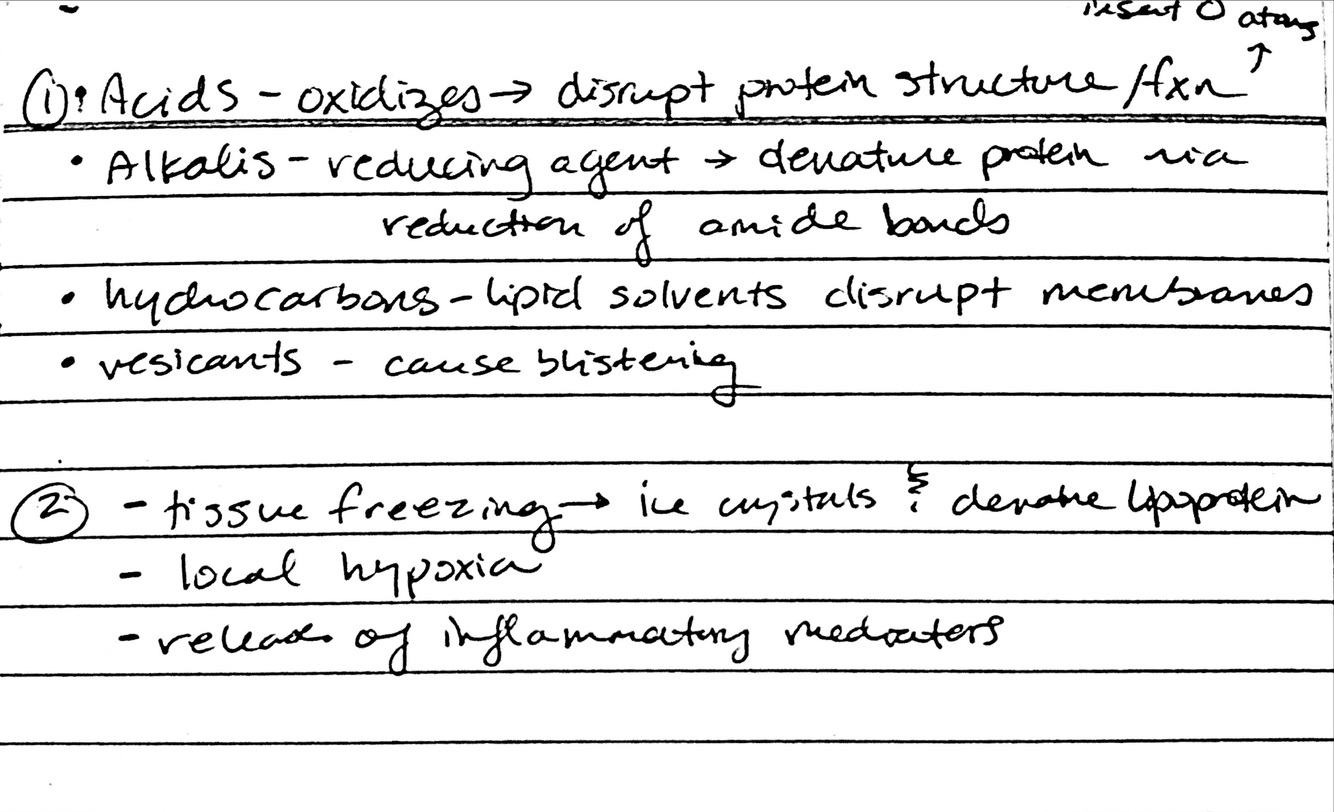 insert O atoms
↑
① • Acids - oxidizes → disrupt protein structure/fxn
• Alkalis - reducing agent → denature protein via
reduction of amide bonds
• hydrocarbons - lipid solvents disrupt membranes
• vesicants - cause blistering
② - tissue freezing → ice crystals & denature lipoprotein
- local hypoxia
- release of inflammatory mediators